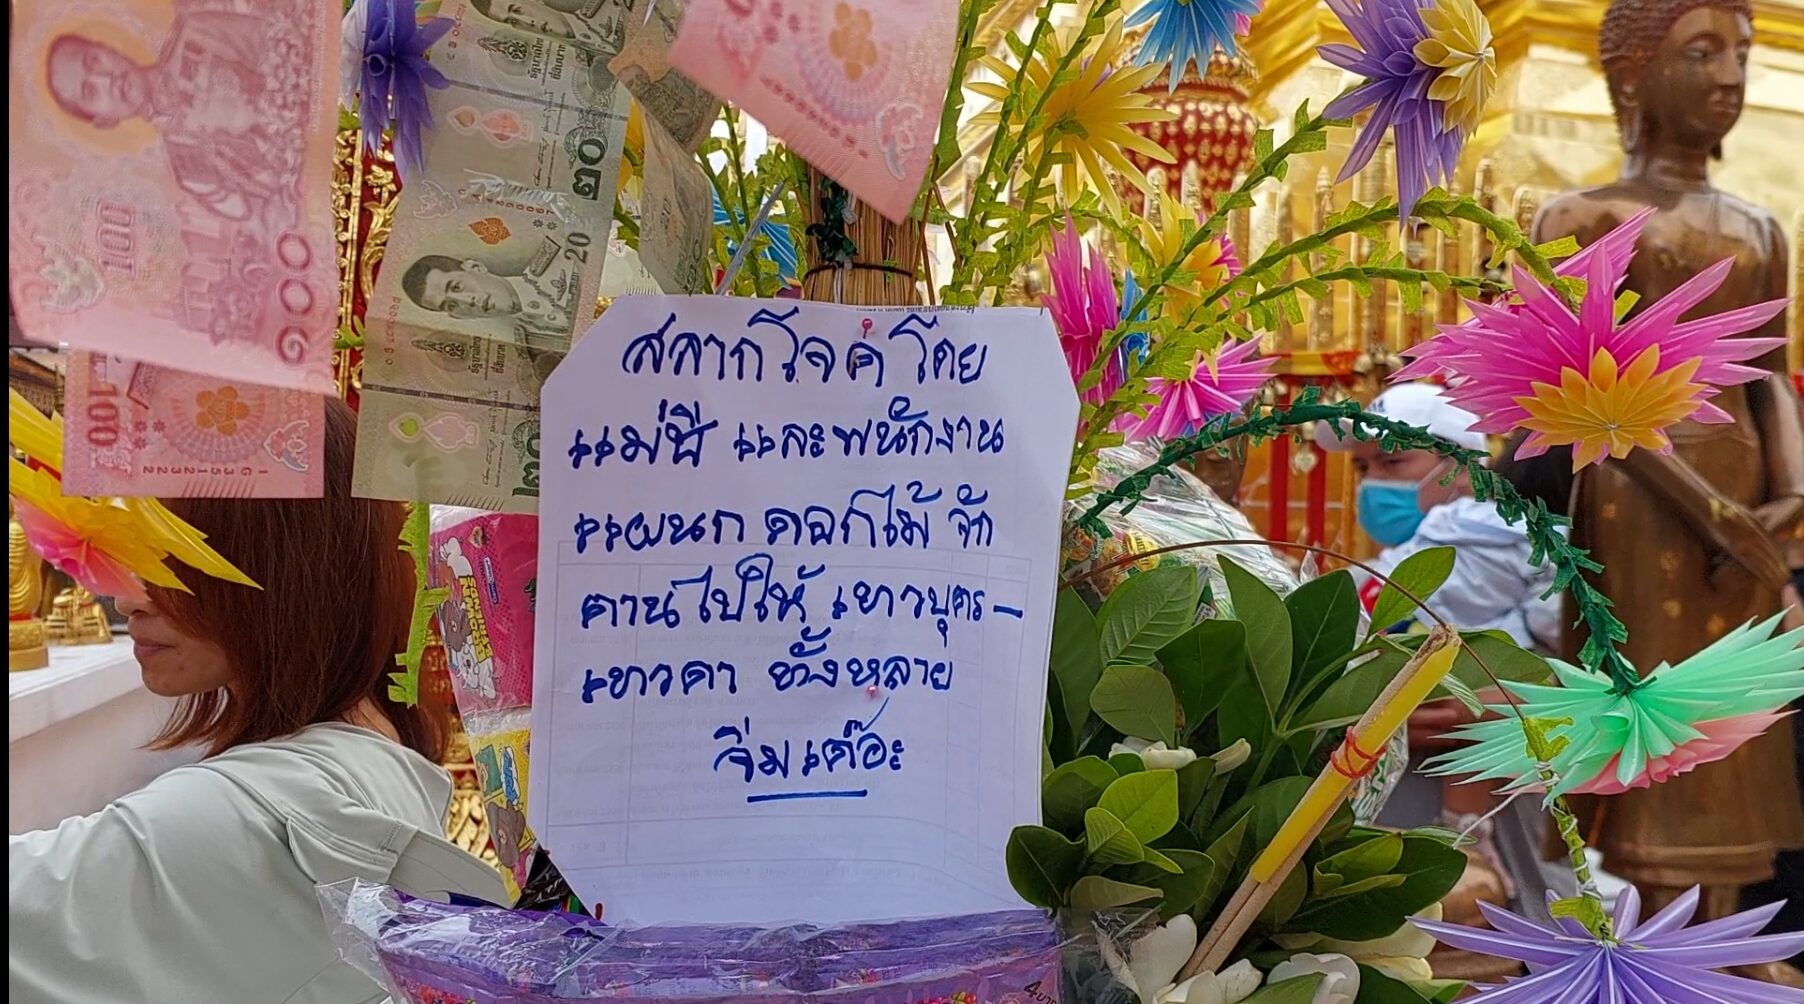 100
๑๐๐
100
G 3515322
รัฐบาลไทย
๒๐
20
๒๐
สลากโจค โดย
แม่ชี และพนักงาน
แผนก ดอกไม้ จัก
ตานไปให้ เทวบุตร-
เทวดา ทั้งหลาย
จิ่มเต๊อะ